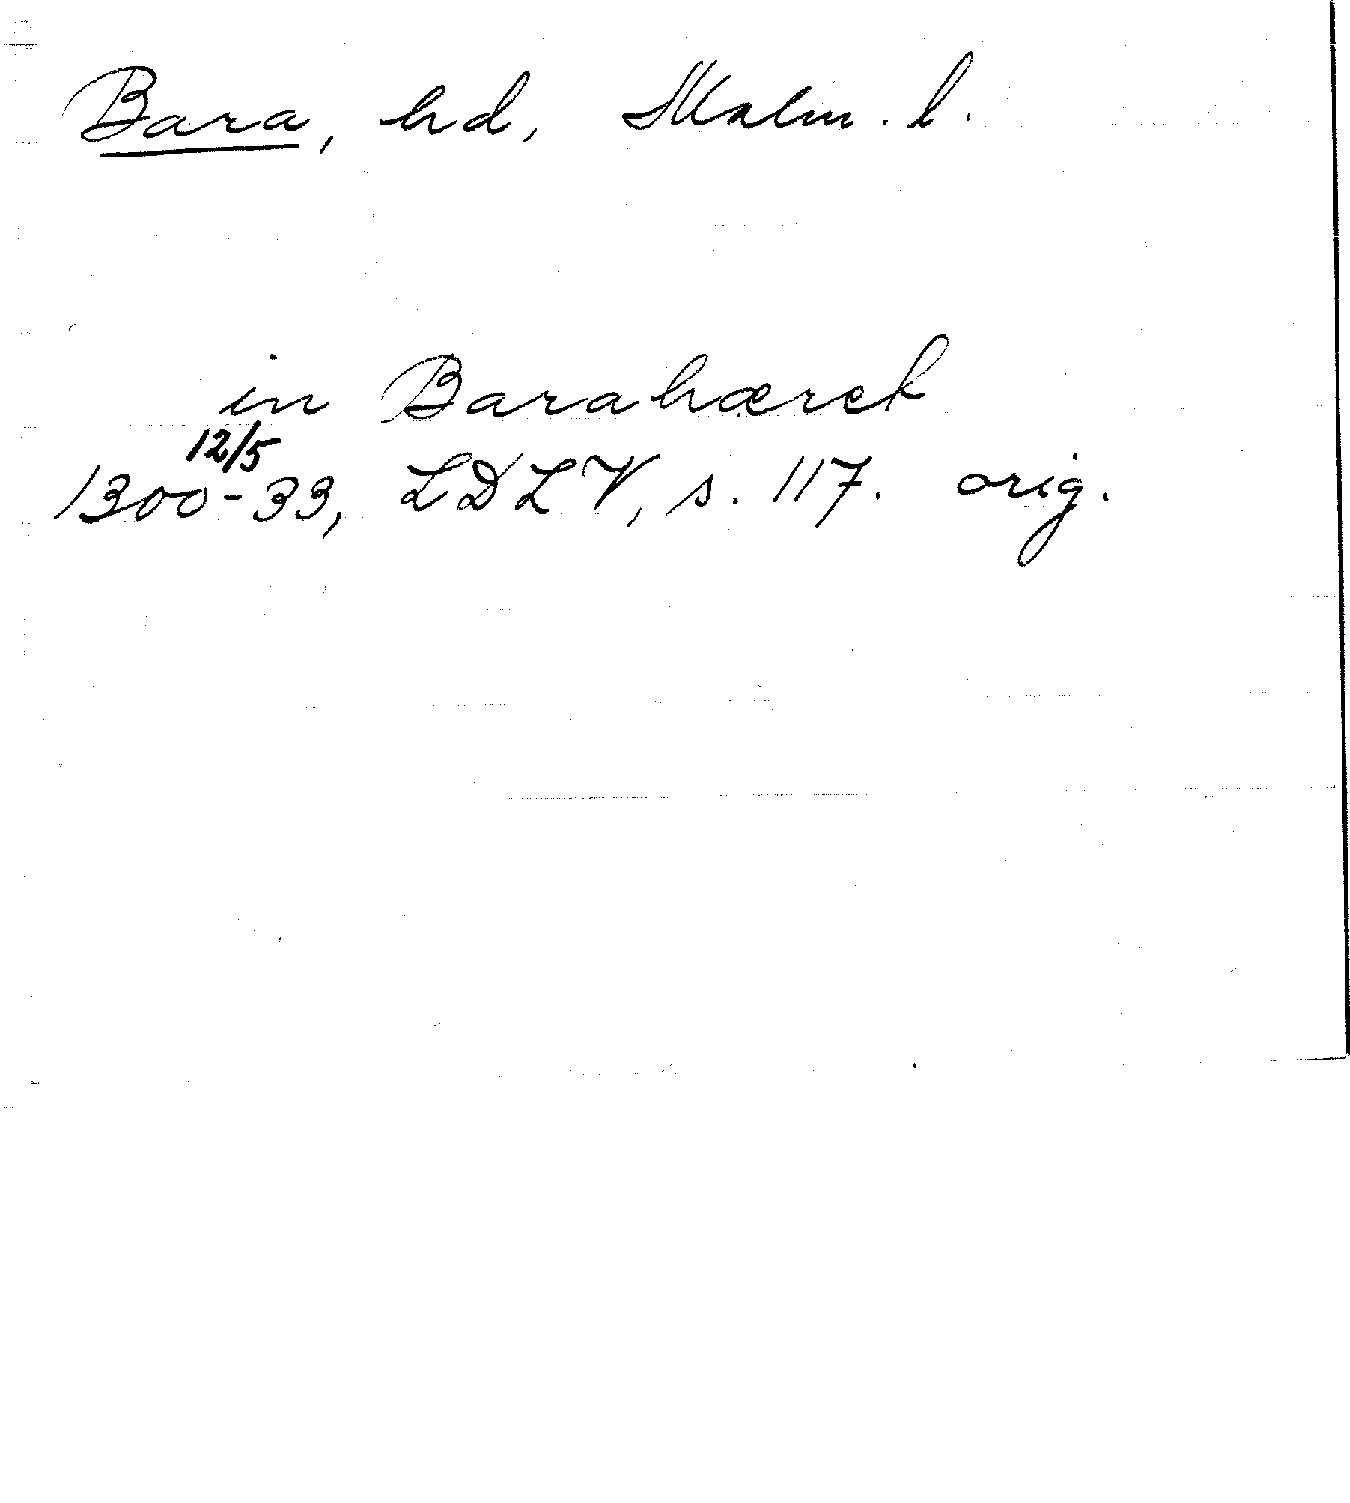 Bara, hd, Malm. l.
in Barahæret
12/5
1300-33, LDLV, s. 117. orig.